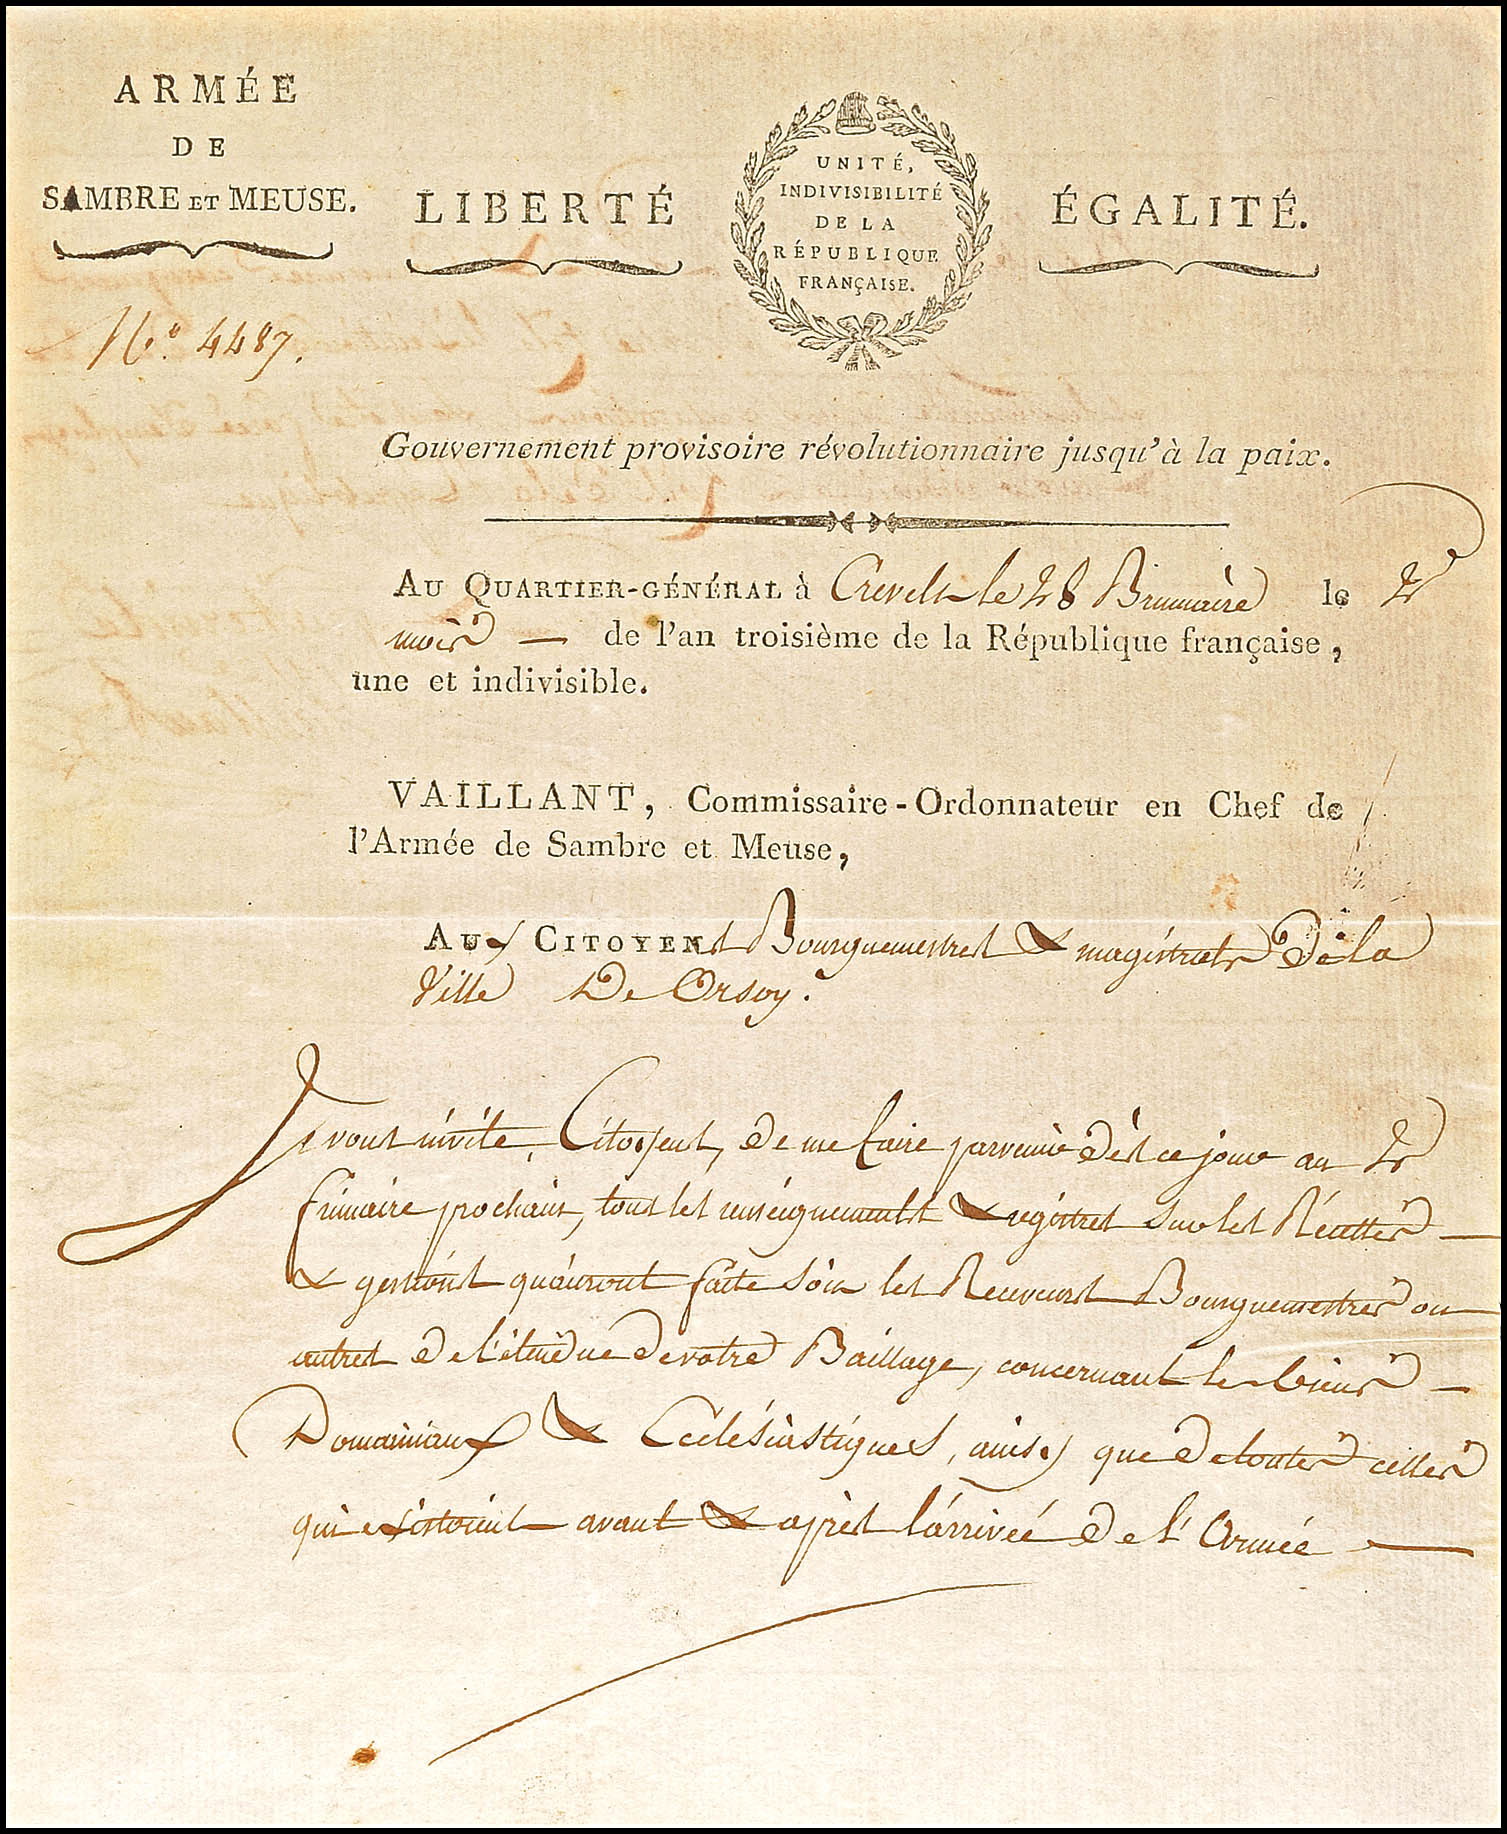 ARMÉE
DE
SAMBRE ET MEUSE.
LIBERTÉ
UNITÉ,
INDIVISIBILITÉ
DE LA
RÉPUBLIQUE
FRANÇAISE.
ÉGALITÉ.
N.º 4487.
Gouvernement provisoire révolutionnaire jusqu'à la paix.
AU QUARTIER-GÉNÉRAL à Crevelt le 28 Brumaire le 2e
mois — de l'an troisième de la République française,
une et indivisible.
VAILLANT, Commissaire-Ordonnateur en Chef de
l'Armée de Sambre et Meuse,
AUx CITOYENs Bourguemestres & magistrats de la
Ville De Orsoy.
Je vous invite, Citoyens, de me faire parvenir dès ce jour au 2
frimaire prochain, tous les renseignements & régistres sur les Récettes —
& gestions qu'auront faite soit les Receveurs Bourguemestres ou
autres de l'étendue de votre Baillage, concernant les biens —
Domainiaux & Ecclésiastiques, ainsy que de toutes celles
qui existoient avant & après l'arrivée de l'Armée —